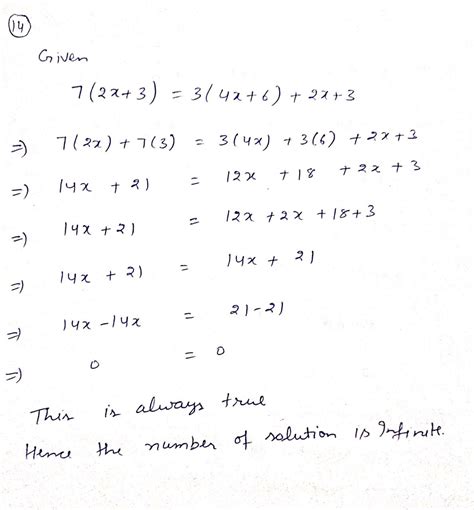 14
Given
7(2x+3) = 3(4x+6) + 2x+3
⇒) 7(2x) + 7(3) = 3(4x) + 3(6) + 2x+3
⇒) 14x + 21 = 12x + 18 + 2x + 3
⇒) 14x + 21 = 12x + 2x + 18+3
⇒) 14x + 21 = 14x + 21
⇒) 14x - 14x = 21-21
⇒) 0 = 0
This is always true
Hence the number of solution is Infinite.